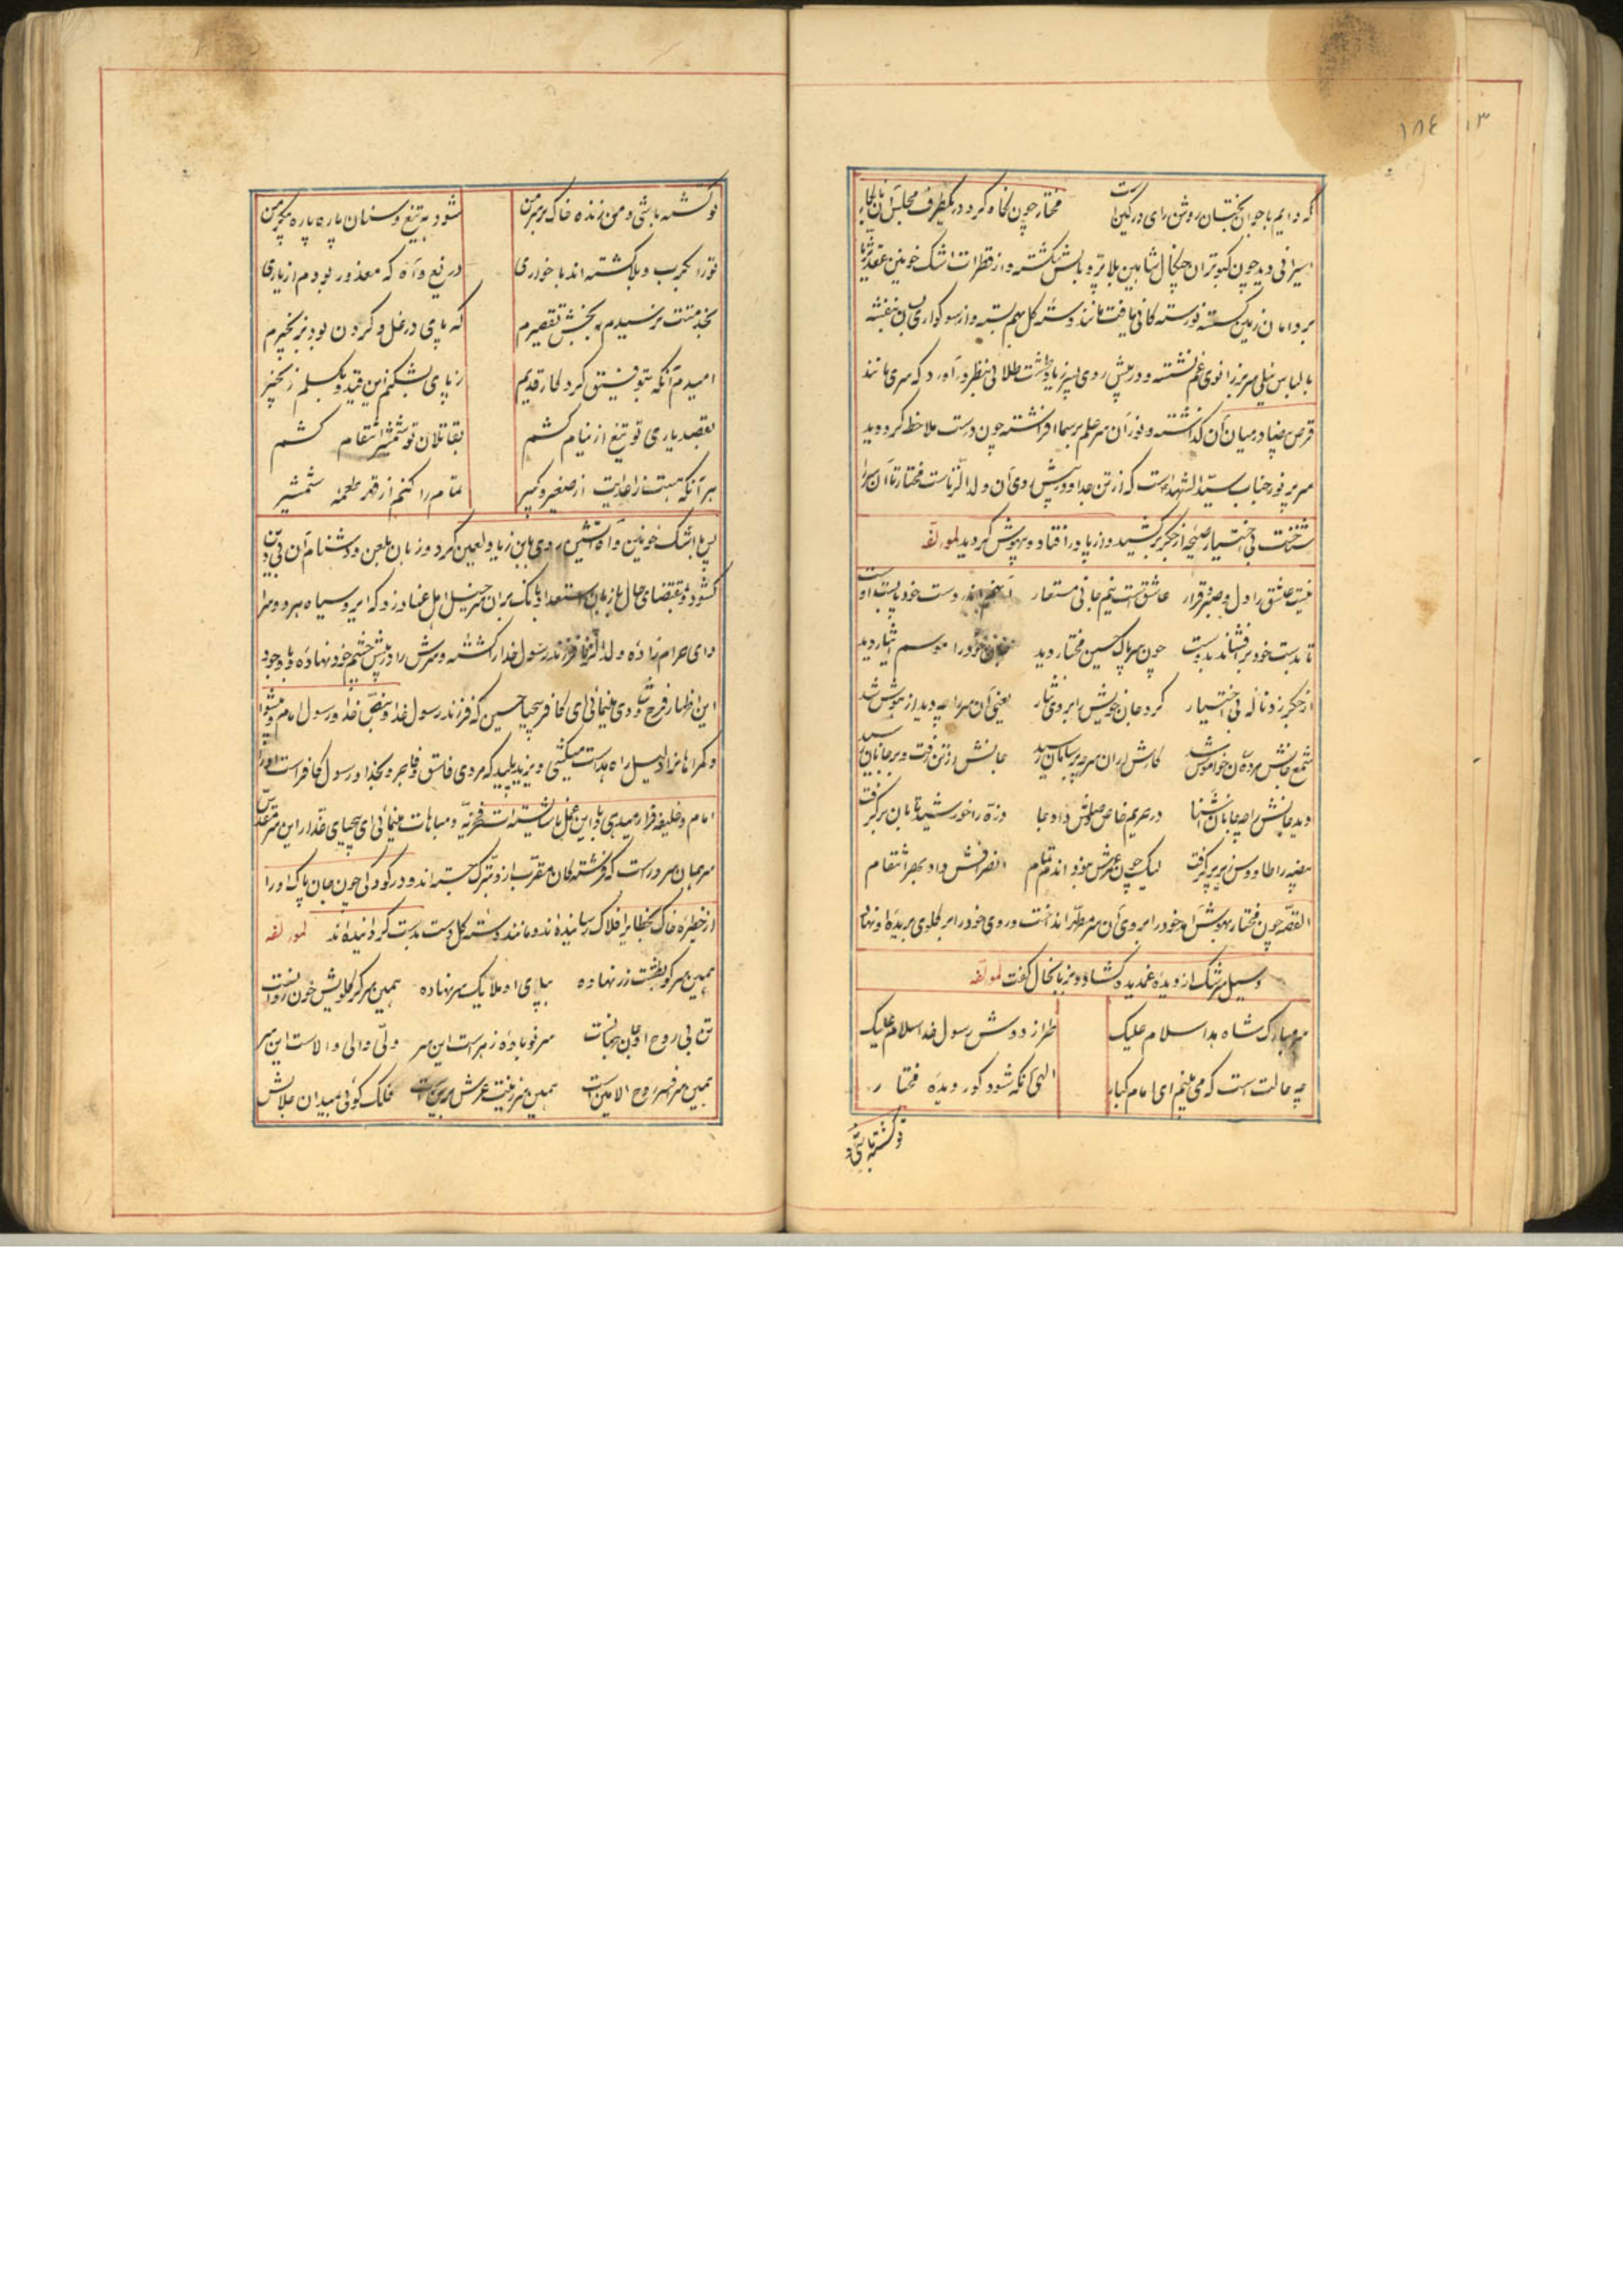 ۱۸٤ ۱۳
که دایم با جوان بختان روشن رای در کین است مختار چون نگاه کرد در یکطرف مجلس آن نابکار
اسیرانی دید چون کبوتران چنگال شاهین بلا پر و بالش شکسته و از قطرات اشک خونین عقد ثریا
بر دامان زمین گسسته نورسته کانی یافت مانند دسته گل بهم بسته و از سوکواری بسان بنفشه
با لباس نیلی سر بزانوی غم نشسته و در پیش روی پسر زیاد طشت طلائی بنظر در آورد که سری مانند
قرص بیضا در میان آن گذاشته و نور آن سر علم بر سما افراشته چون درست ملاحظه کرد دید
سر پر نور جناب سید الشهداست که از تن جدا و در پیش روی آن ولد الزناست مختار تا آن سر را
شناخت بی اختیار صیحه از جگر برکشید و از پا در افتاد و بیهوش گردید لمولفه
نیست عاشق را دل و صبر و قرار عاشق است نیم جانی مستعار آنهم اندر دست خود پابست اوست
تا بدست خود بر افشاند بدوست چون سر پاک حسین مختار دید جان خود را موسم ایثار دید
از جگر زد ناله بی اختیار کرد جان خویش را بر وی نثار یعنی آن سر را چه دید از هوش شد
شمع جانش مرد و تن خاموش شد کارش از آن سر چه بر سامان رسید جانش از تن رفت و بر جانان رسید
دید جانش را چه جانان آشنا در حریم خاص وصلش داد جا ذره را خورشید تابان بر گرفت
بیضه را طاووس زیر پر گرفت لیک چون عمرش نبود اندم تمام انصرافش داد بهر انتقام
القصه چون مختار بهوش آمد خود را بر روی آن سر مطهر انداخت و روی خود را بر گلوی بریده او نهاد
و سیل سرشک از دیده غمدیده گشاد و بزبانحال گفت لمولفه
سر مبارک شاه هدا سلام علیک طراز دوش رسول خدا سلام علیک
چه حالت است که می بینم ای امام کبار الهی آنکه شود کور دیده مختار
تو کشته باشی و
تو کشته باشی و من زنده خاک بر سر من شود به تیغ و سنان پاره پاره پیکر من
تو را بکرب و بلا کشته اند با خواری دریغ و آه که معذور بودم از یاری
بخدمتت نرسیدم ببخش تقصیرم که پای در غل و گردن بود بزنجیرم
امیدم آنکه بتوفیق کردگار قدیم ز پای بشکنم این قید و بگسلم زنجیر
بقصد یاری تو تیغ از نیام کشم بقاتلان تو شمشیر انتقام کشم
هر آنکه هست ز اعدایت از صغیر و کبیر تمام را کنم از قهر طعمه شمشیر
پس با اشک خونین و آه آتشین روی بابن زیاد لعین کرد و زبان بلعن و دشنام آن بی دین
گشود و بمقتضای حال با زبان استعداد بانگ بر آن سر خیل اهل عناد زد که ای رو سیاه هر دو سرا
وای حرام زاده ولد الزنا فرزند رسول خدا را کشته و سرش را در پیش چشم خود نهاده و با وجود
این اظهار فرح و شادی مینمائی ای کافر بیحیا حسین که فرزند رسول خدا و بنص خدا و رسول امام و پیشوا
و گمراهانرا دلیل راه هداست میکشی و یزید پلید که مردی فاسق و فاجر و بخدا و رسول کافر است او را
امام و خلیفه قرار میدهی و باین عمل ناشایسته است فخریه و مباهات مینمائی ای بیحیای غدار این سر مقدس
سر جهان سرور است که فرشته کان مقرب از او تبرک جسته اند و در کودکی چون جان پاک او را
از حظیره خاک بخطایر افلاک رسانیده اند و مانند دسته گل دست بدست گردانیده اند لمولفه
همین سر کو بطشت زر نهاده بپای او ملایک سر نهاده همین سر کز گلویش خون روانست
تن بی روح او جان جهانست سر نوباده زهراست این سر ولی والی والاست این سر
همین سر افسر روح الامین است همین سر زینت عرش برین است فلک گوئی بمیدان جلالش